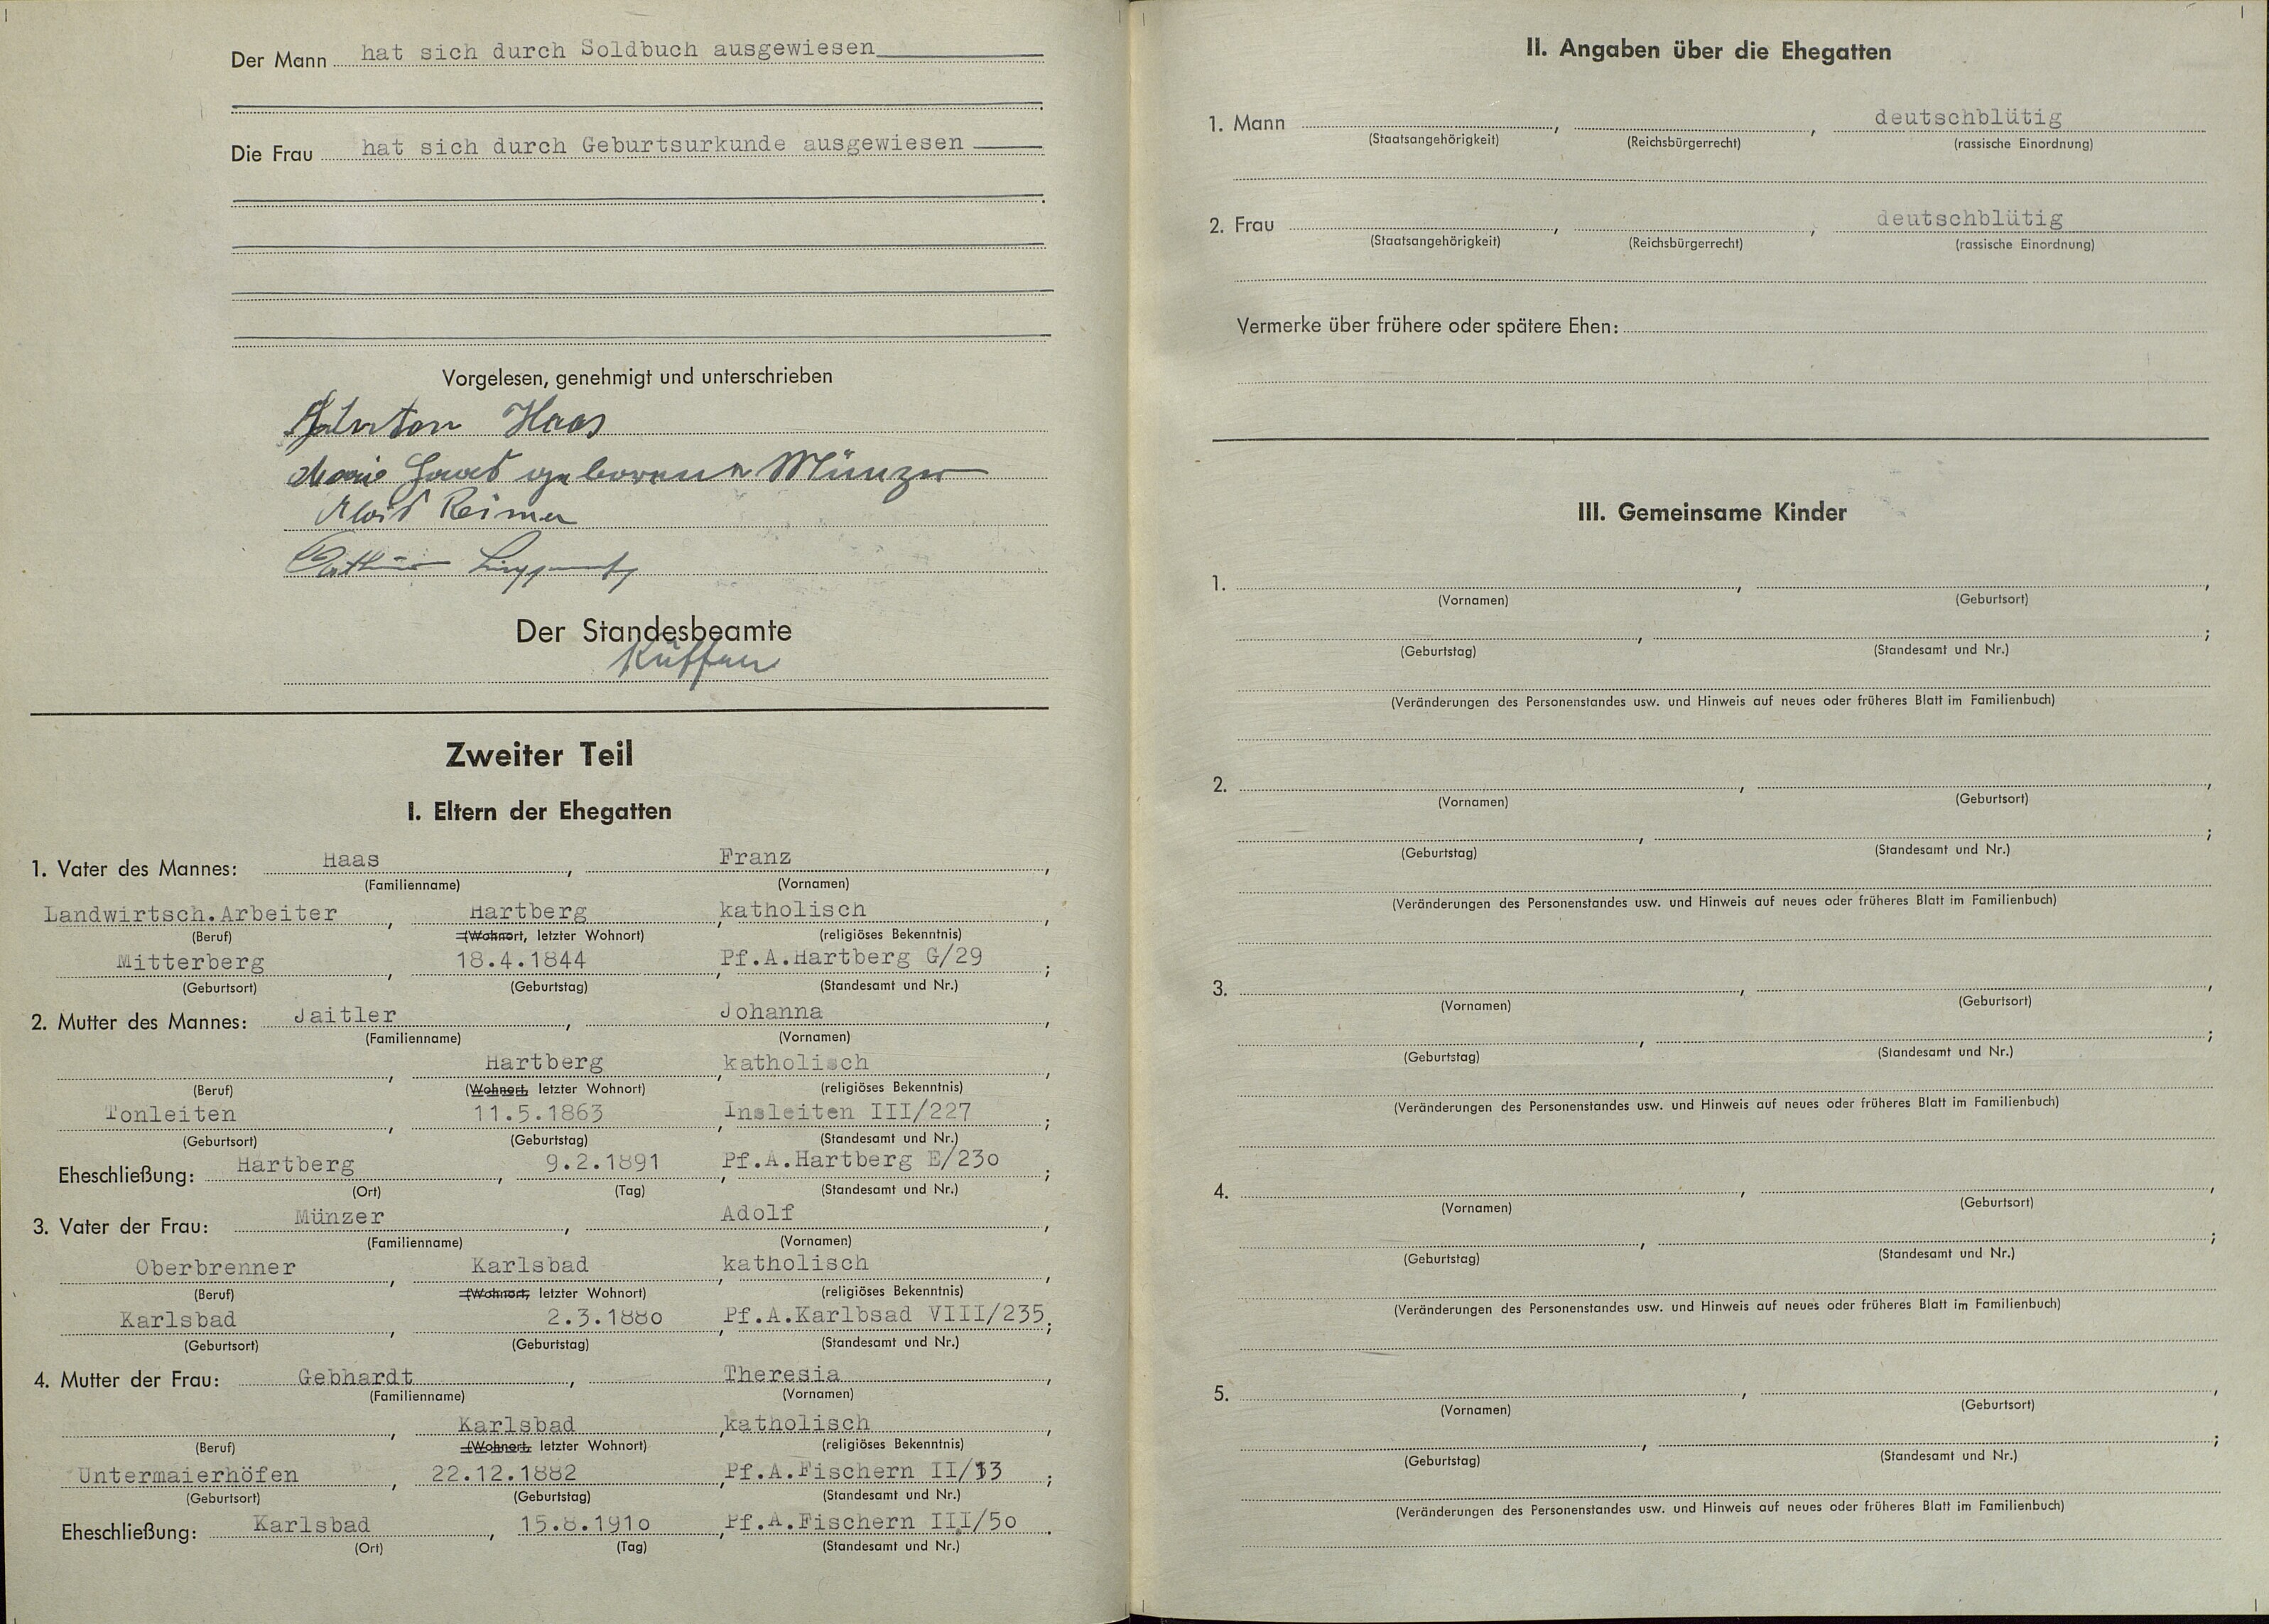 Der Mann hat sich durch Soldbuch ausgewiesen
Die Frau hat sich durch Geburtsurkunde ausgewiesen
Vorgelesen, genehmigt und unterschrieben
Anton Haas
Marie Haas geborene Münzer
Alois Reimer
Der Standesbeamte
Zweiter Teil
I. Eltern der Ehegatten
1. Vater des Mannes: Haas, Franz,
(Familienname) (Vornamen)
Landwirtsch.Arbeiter, Hartberg, katholisch,
(Beruf) (Wohnort, letzter Wohnort) (religiöses Bekenntnis)
Mitterberg, 18.4.1844, Pf.A.Hartberg G/29;
(Geburtsort) (Geburtstag) (Standesamt und Nr.)
2. Mutter des Mannes: Jaitler, Johanna,
(Familienname) (Vornamen)
, Hartberg, katholisch,
(Beruf) (Wohnort, letzter Wohnort) (religiöses Bekenntnis)
Tonleiten, 11.5.1863, Insleiten III/227;
(Geburtsort) (Geburtstag) (Standesamt und Nr.)
Eheschließung: Hartberg, 9.2.1891, Pf.A.Hartberg E/23o;
(Ort) (Tag) (Standesamt und Nr.)
3. Vater der Frau: Münzer, Adolf,
(Familienname) (Vornamen)
Oberbrenner, Karlsbad, katholisch,
(Beruf) (Wohnort, letzter Wohnort) (religiöses Bekenntnis)
Karlsbad, 2.3.188o, Pf.A.Karlbsad VIII/235;
(Geburtsort) (Geburtstag) (Standesamt und Nr.)
4. Mutter der Frau: Gebhardt, Theresia,
(Familienname) (Vornamen)
, Karlsbad, katholisch,
(Beruf) (Wohnort, letzter Wohnort) (religiöses Bekenntnis)
Untermaierhöfen, 22.12.1882, Pf.A.Fischern II/13;
(Geburtsort) (Geburtstag) (Standesamt und Nr.)
Eheschließung: Karlsbad, 15.8.191o, Pf.A.Fischern III/5o.
(Ort) (Tag) (Standesamt und Nr.)
II. Angaben über die Ehegatten
1. Mann , , deutschblütig
(Staatsangehörigkeit) (Reichsbürgerrecht) (rassische Einordnung)
2. Frau , , deutschblütig
(Staatsangehörigkeit) (Reichsbürgerrecht) (rassische Einordnung)
Vermerke über frühere oder spätere Ehen:
III. Gemeinsame Kinder
1. , ,
(Vornamen) (Geburtsort)
, ;
(Geburtstag) (Standesamt und Nr.)
(Veränderungen des Personenstandes usw. und Hinweis auf neues oder früheres Blatt im Familienbuch)
2. , ,
(Vornamen) (Geburtsort)
, ;
(Geburtstag) (Standesamt und Nr.)
(Veränderungen des Personenstandes usw. und Hinweis auf neues oder früheres Blatt im Familienbuch)
3. , ,
(Vornamen) (Geburtsort)
, ;
(Geburtstag) (Standesamt und Nr.)
(Veränderungen des Personenstandes usw. und Hinweis auf neues oder früheres Blatt im Familienbuch)
4. , ,
(Vornamen) (Geburtsort)
, ;
(Geburtstag) (Standesamt und Nr.)
(Veränderungen des Personenstandes usw. und Hinweis auf neues oder früheres Blatt im Familienbuch)
5. , ,
(Vornamen) (Geburtsort)
, ;
(Geburtstag) (Standesamt und Nr.)
(Veränderungen des Personenstandes usw. und Hinweis auf neues oder früheres Blatt im Familienbuch)